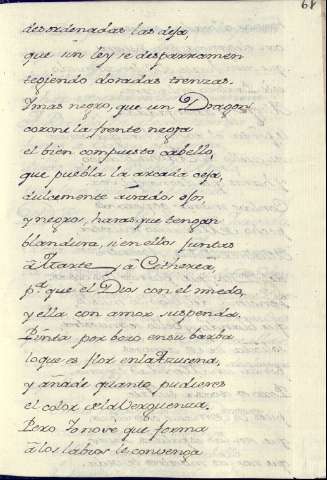 68
desordenadas las deja,
que sin ley se desparramen
tegiendo doradas trenzas.
Ymas negro, que un Dragon
corone la frente negra
el bien compuesto cabello,
que puebla la arcada ceja,
dulcemente airados ojos,
y negros, haras que tengan
blandura, si en ellos juntas
â Marte y â Citherea,
pª. que el Dios con el miedo,
y ella con amor suspenda.
Pinta por bozo en su barba
loque es flor enla Azuzena,
y añade quanto pudieres
el color dela Verguenza.
Pero Yo no ve que forma
â los labios le convenga